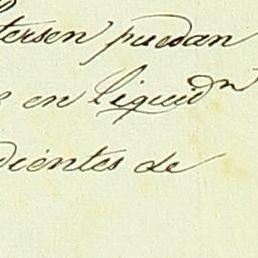 tersen puedan
e en liquidn
dientes de